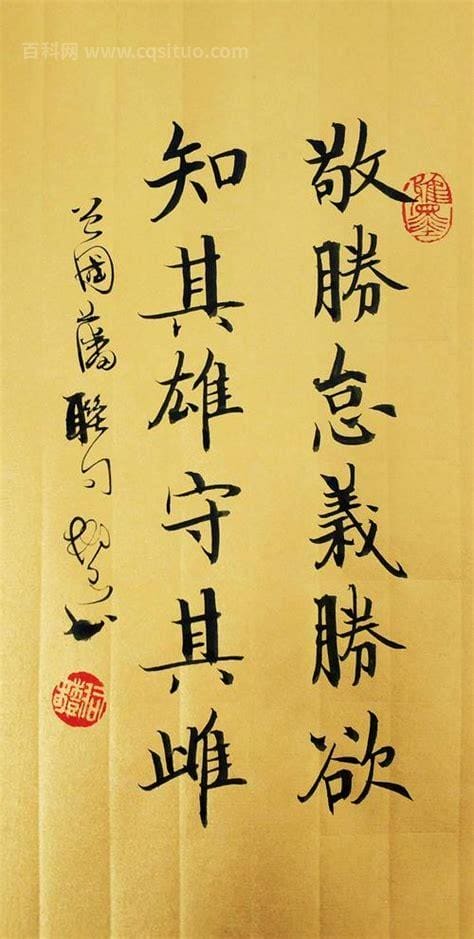 百科网 www.cqsituo.com
敬勝怠義勝欲
知其雄守其雌
曾國藩聯句